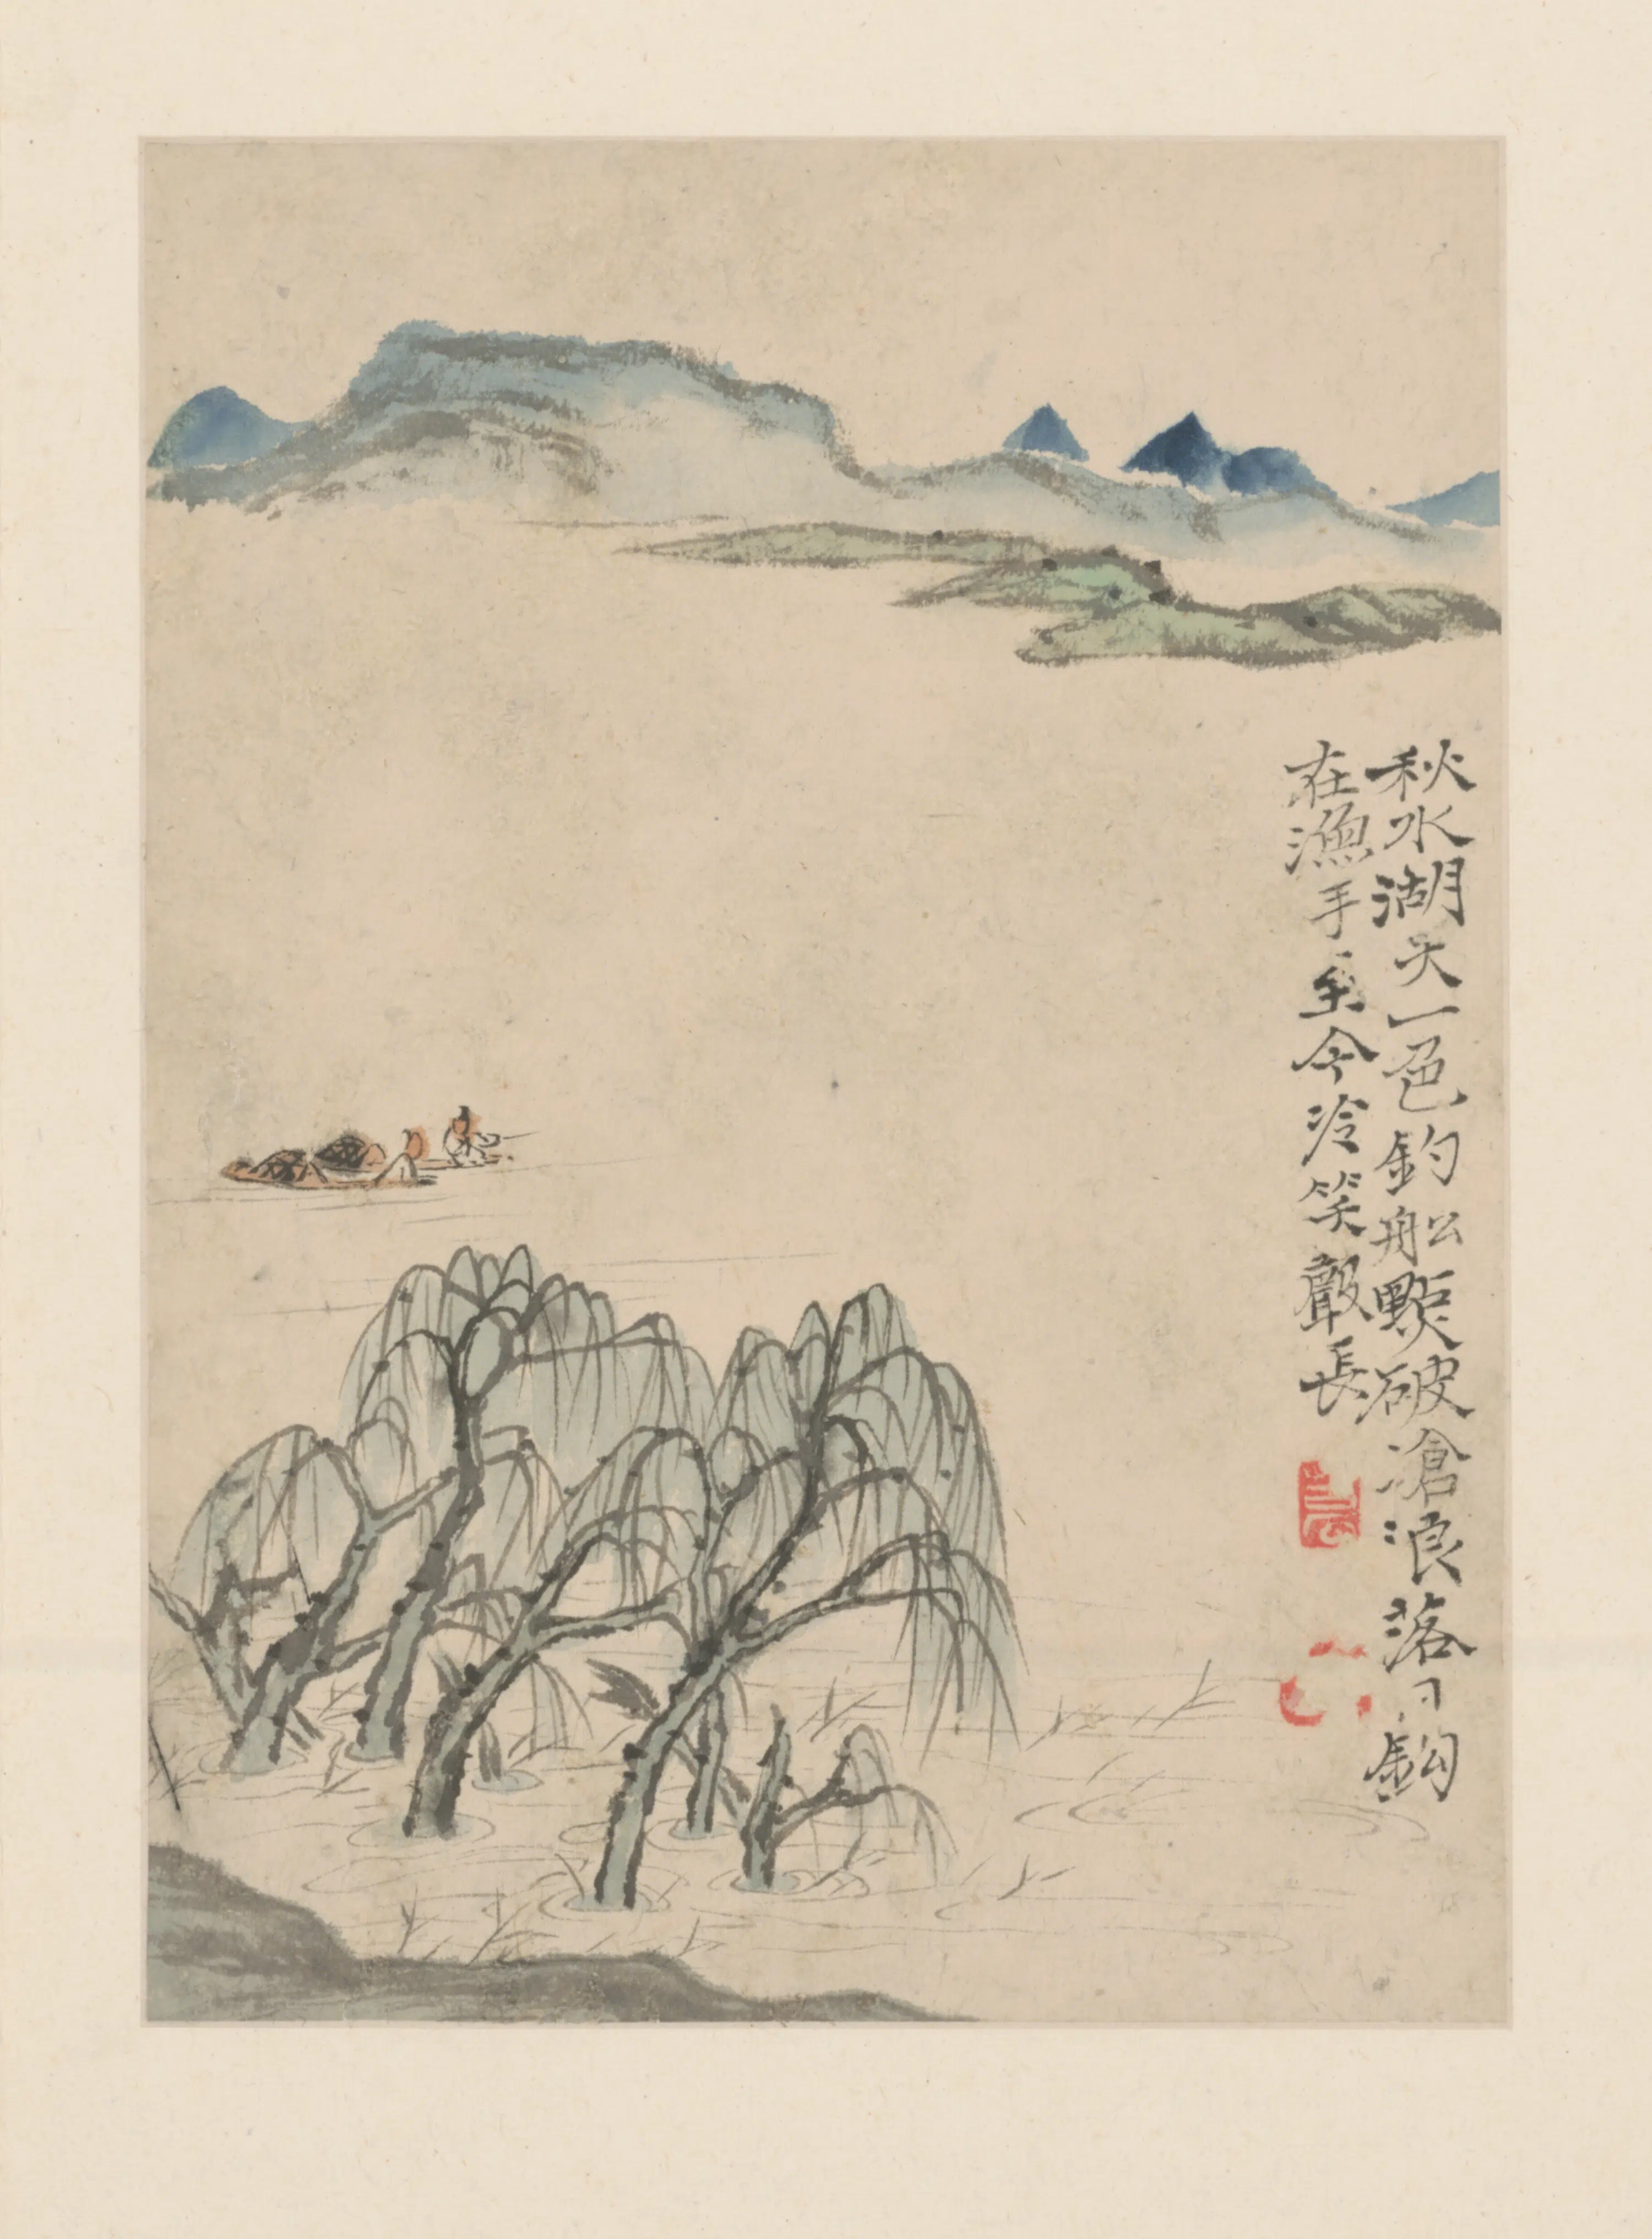 秋水湖天一色釣船點破滄浪落日鈎
在漁手至今冷笑嚴長